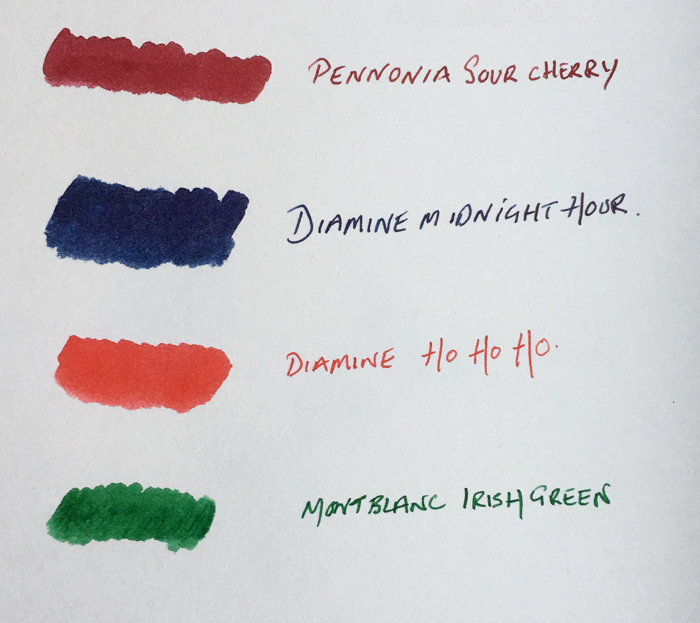 PENNONIA SOUR CHERRY
DIAMINE MIDNIGHT HOUR.
DIAMINE HO HO HO.
MONTBLANC IRISH GREEN